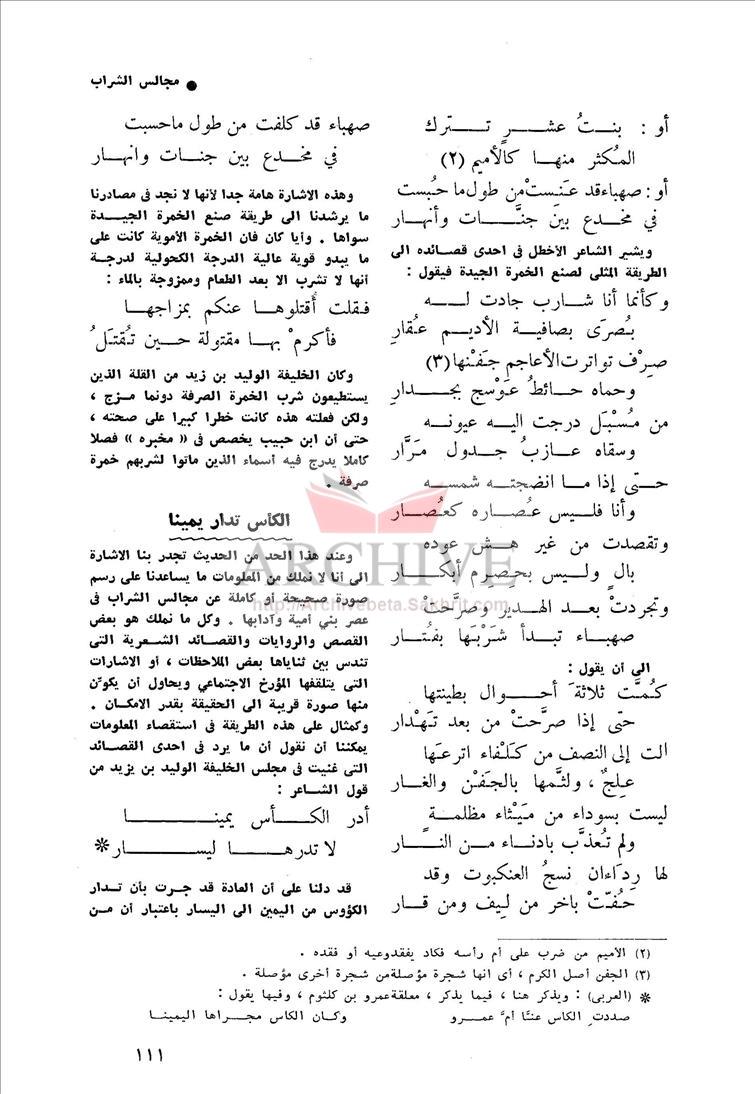 ● مجالس الشراب
أو : بنتُ عشر تترك
المُكثر منها كالأميم (٢)
أو : صهباء قد عنَستْ من طول ما حُبست
في مخدع بين جنَّات وأنهار
ويشير الشاعر الأخطل في احدى قصائده الى
الطريقة المثلى لصنع الخمرة الجيدة فيقول :
وكأنما أنا شارب جادت له
بُصرَى بصافية الأديم عقارِ
صِرْف تواترت الأعاجم جَفنْها (٣)
وحماه حائطُ عَوْسج بجدارِ
من مُسْبَل درجت اليه عيونه
وسقاه عازبُ جدول مَرَّار
حتى إذا ما انضجته شمسه
وأنا فليس عُصاره كعُصار
وتقصدت من غير هش عوده
بال وليس بحِصرم أبكار
وتجردتْ بعد الهدير وصرَّحتْ
صهباء تبدأ شَرْبَها بفُتار
الى أن يقول :
كُمَّت ثلاثةَ أحوال بطينتها
حتى إذا صرَّحتْ من بعد تَهْدار
الت إلى النصف من كَلْفاء اترعَها
عِلجٌ ، ولثَّمها بالجَفْن والغار
ليست بسوداء من مَيْثاء مظلمة
ولم تُعذَّب بادناء من النَّار
لها رِداءان نسجُ العنكبوت وقد
حُفَّتْ باخر من لِيف ومن قار
صهباء قد كلفت من طول ما حبست
في مخدع بين جنات وانهار
وهذه الاشارة هامة جدا لأنها لا نجد في مصادرنا
ما يرشدنا الى طريقة صنع الخمرة الجيدة
سواها . وأيا كان فان الخمرة الأموية كانت على
ما يبدو قوية عالية الدرجة الكحولية لدرجة
أنها لا تشرب الا بعد الطعام وممزوجة بالماء :
فقلت أُقتلوها عنكم بمزاجها
فأكرمْ بها مقتولة حين تُقتَلُ
وكان الخليفة الوليد بن زيد من القلة الذين
يستطيعون شرب الخمرة الصرفة دونما مزج ،
ولكن فعلته هذه كانت خطرا كبيرا على صحته ،
حتى أن ابن حبيب يخصص في « مخبره » فصلا
كاملا يدرج فيه أسماء الذين ماتوا لشربهم خمرة
صرفة .
الكأس تدار يمينا
وعند هذا الحد من الحديث تجدر بنا الاشارة
الى أنا لا نملك من المعلومات ما يساعدنا على رسم
صورة صحيحة أو كاملة عن مجالس الشراب في
عصر بني أمية وآدابها . وكل ما نملك هو بعض
القصص والروايات والقصائد الشعرية التى
تندس بين ثناياها بعض الملاحظات ، أو الاشارات
التى يتلقفها المؤرخ الاجتماعي ويحاول أن يكوّن
منها صورة قريبة الى الحقيقة بقدر الامكان .
وكمثال على هذه الطريقة في استقصاء المعلومات
يمكننا أن نقول أن ما يرد في احدى القصائد
التى غنيت في مجلس الخليفة الوليد بن يزيد من
قول الشاعر :
أدر الكأس يمينا
لا تدرها ليسار*
قد دلنا على أن العادة قد جرت بأن تدار
الكؤوس من اليمين الى اليسار باعتبار أن من
(٢) الأميم من ضرب على أم رأسه فكاد يفقد وعيه أو فقده .
(٣) الجفن أصل الكرم ، أى انها شجرة مؤصلة من شجرة أخرى مؤصلة .
* (العربي) : ويذكر هنا ، فيما يذكر ، معلقة عمرو بن كلثوم ، وفيها يقول :
صددتِ الكأس عنَّا أمَّ عمرو وكان الكاس مجراها اليمينا
١١١
ARCHIVE
http://Archivebeta.Sakhrit.com